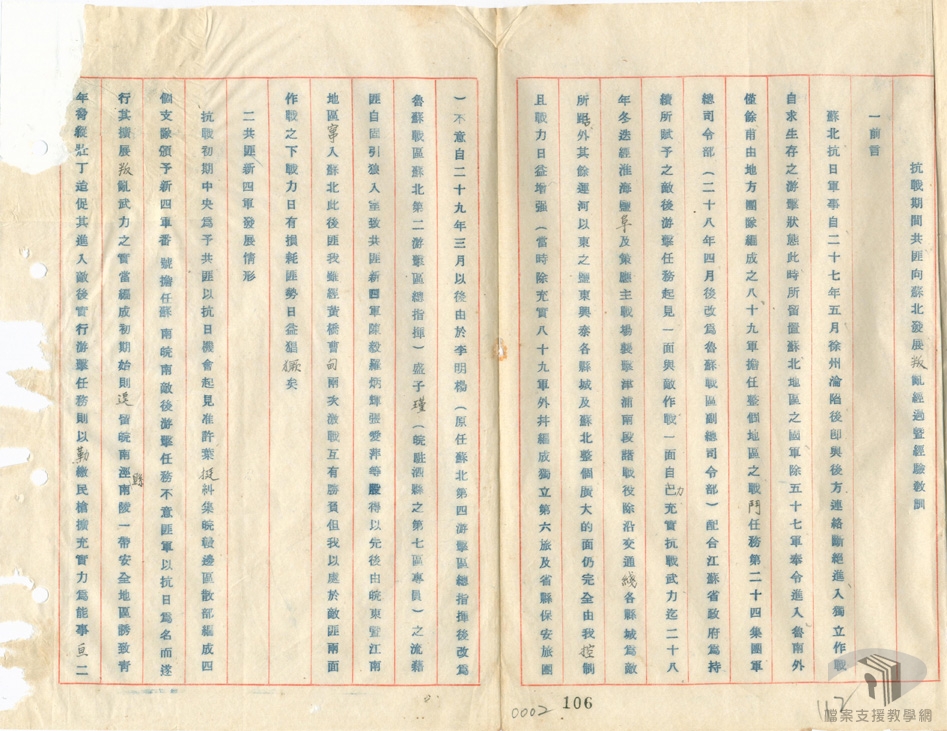 抗戰期間共匪向蘇北發展叛亂經過暨經驗教訓
一前言
蘇北抗日軍事自二十七年五月徐州淪陷後即與後方連絡斷絕進入獨立作戰
自求生存之游擊狀態此時所留置蘇北地區之國軍除五十七軍奉令進入魯南外
僅餘甫由地方團隊編成之八十九軍擔任整個地區之戰鬥任務第二十四集團軍
總司令部（二十八年四月後改為魯蘇戰區副總司令部）配合江蘇省政府為持
續所賦予之敵後游擊任務起見一面與敵作戰一面自力充實抗戰武力迄二十八
年冬迭經淮海鹽阜及策應主戰場襲擊津浦南段諸戰役除沿交通綫各縣城為敵
所踞外其餘運河以東之鹽東興泰各縣城及蘇北整個廣大的面仍完全由我控制
且戰力日益增強（當時除充實八十九軍外并編成獨立第六旅及省縣保安旅團
）不意自二十九年三月以後由於李明楊（原任蘇北第四游擊區總指揮後改為
魯蘇戰區蘇北第二游擊區總指揮）盛子瑾（皖駐泗縣之第七區專員）之流藉
匪自固引狼入室致共匪新四軍陳毅羅炳輝張愛萍等股得以先後由皖東暨江南
地區竄入蘇北此後匪我雖經黃橋曹甸兩次激戰互有勝負但我以處於敵匪兩面
作戰之下戰力日有損耗匪勢日益猖獗矣
二共匪新四軍發展情形
抗戰初期中央為予共匪以抗日機會起見准許葉挺糾集皖贛邊區散部編成四
個支隊頒予新四軍番號擔任蘇南皖南敵後游擊任務不意匪軍以抗日為名而遂
行其擴展叛亂武力之實當編成初期始則逗留皖南涇縣南陵一帶安全地區誘致青
年脅緃壯丁迨促其進入敵後實行游擊任務則以勒繳民槍擴充實力為能事亘二
0002
106
112
檔案支援教學網